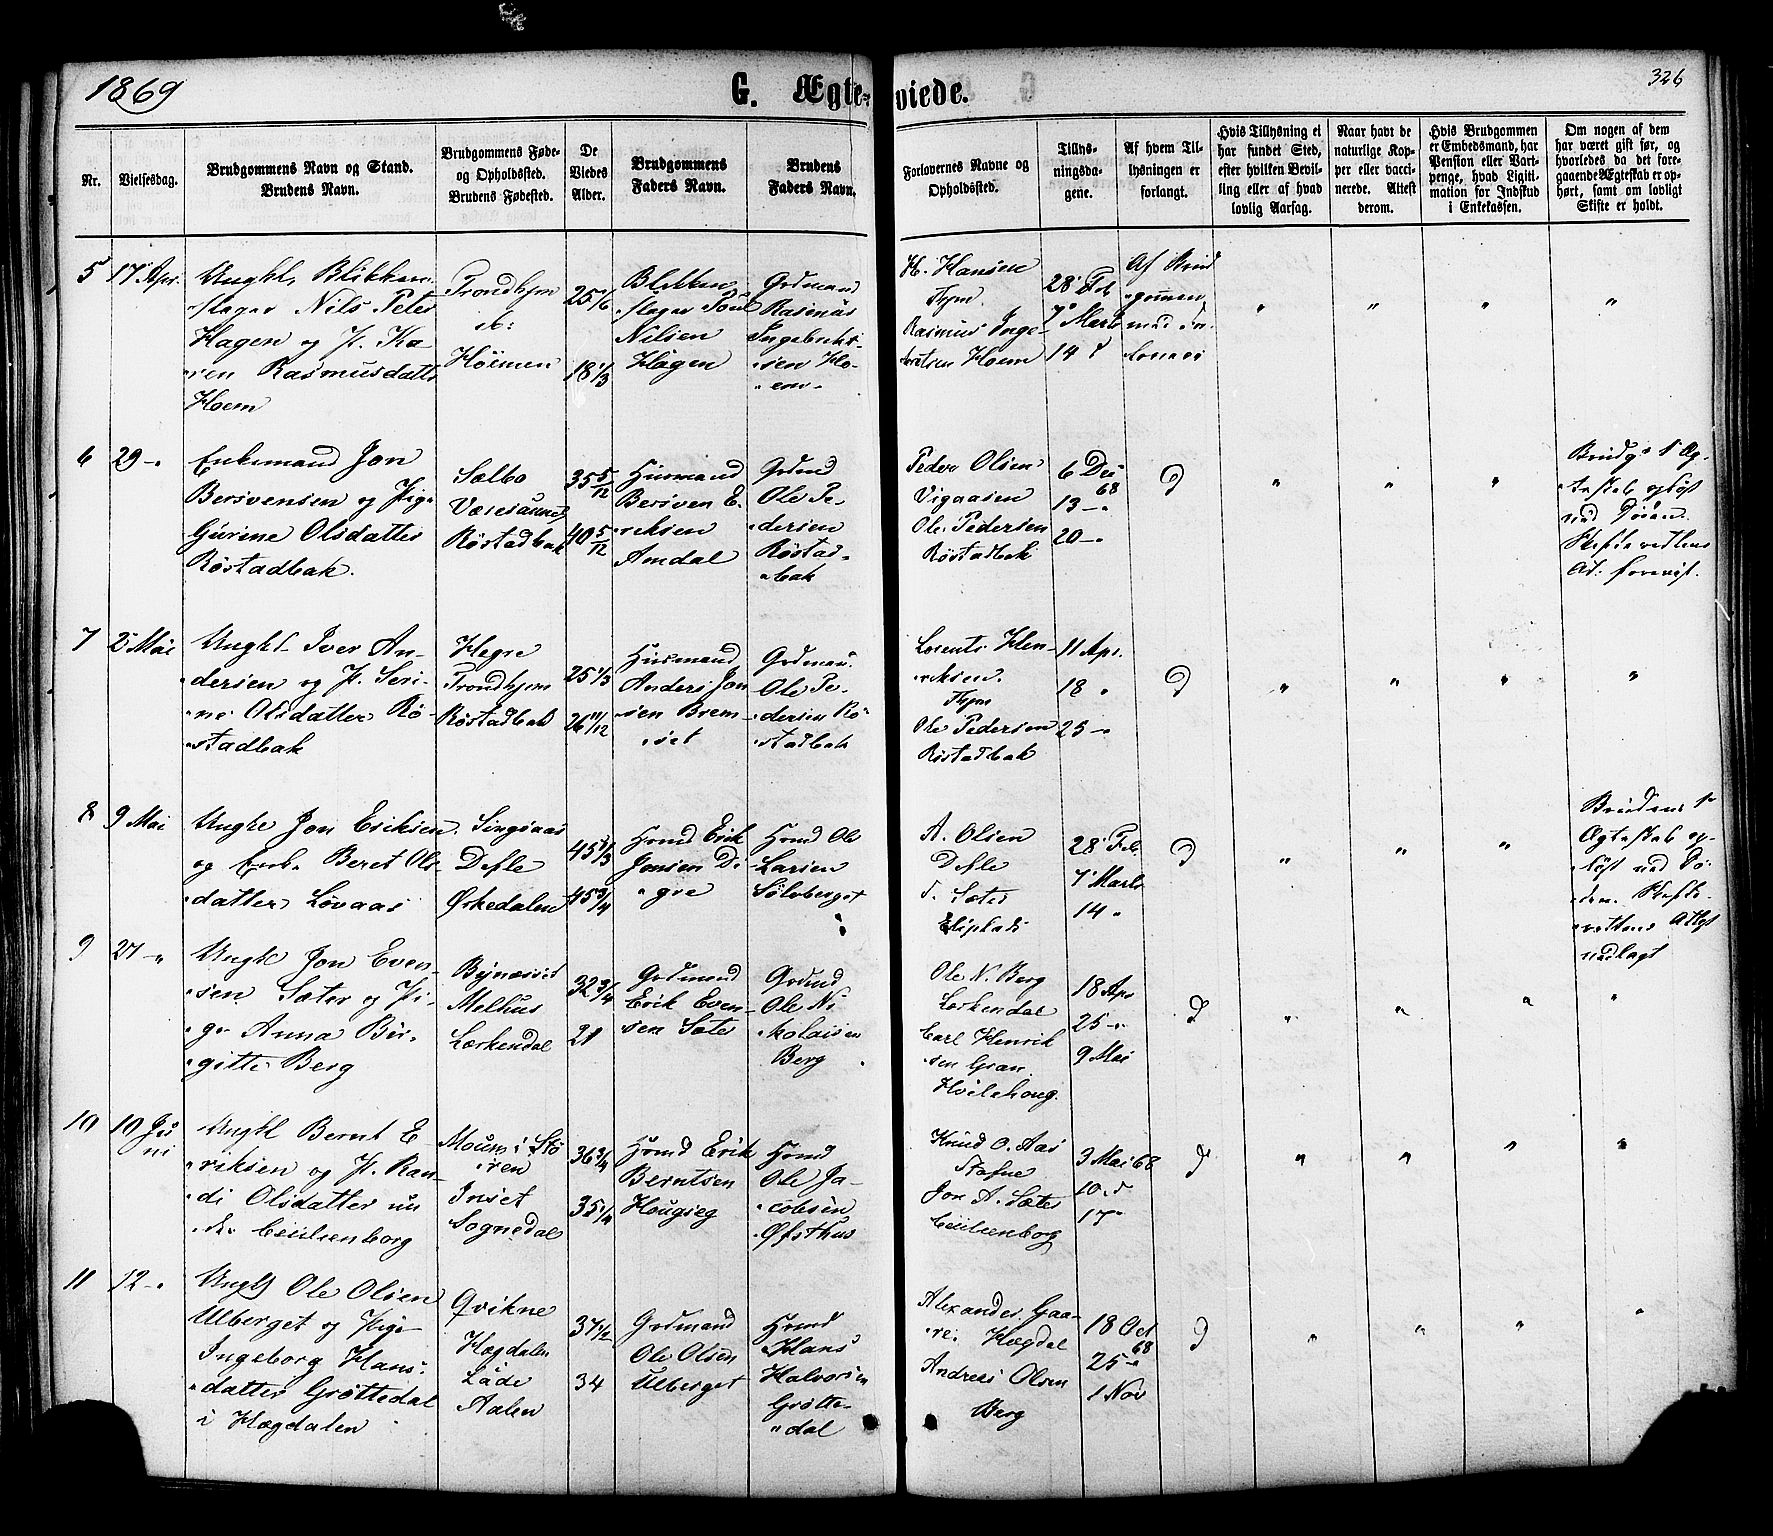 1869
G. Ægteviede.
326
Nr.
Vielsesdag.
Brudgommens Navn og Stand.
Brudens Navn.
Brudgommens Føde-
og Opholdssted.
Brudens Fødested.
De
Viedes
Alder.
Brudgommens
Faders Navn.
Brudens
Faders Navn.
Forlovernes Navne og
Opholdssted.
Tillys-
ningsda-
gene.
Af hvem Til-
lysningen er
forlangt.
Hvis Tillysning ei
har fundet Sted,
efter hvilken Bevil-
ling eller af hvad
lovlig Aarsag.
Naar havt de
naturlige Kop-
per eller vacci-
nerede. Attest
derom.
Hvis Brudgommen
er Embedsmand, har
Pension eller Vart-
penge, hvad Ligiti-
mation for Indskud
i Enkekassen.
Om nogen af dem
har været gift før, og
hvorledes da det fore-
gaaende Ægteskab er op-
hørt, samt om lovligt
Skifte er holdt.
5
17 Apr.
Ungkl. Blikken-
slager Nils Peter
Hagen og P. Ka-
ren Rasmusdatter
Hoem
Trondhjem
Høimen
25 1/6
18 1/3
Blikken-
slager Poul
Nilsen
Hagen
Grdmand
Rasmus
Ingebrikt-
sen Ho-
em
H. Hansen
Thjm.
Rasmus Inge-
briktsen Hoem
28 Feb
7 Marts
14
Af Brud
gommen
6
29 -"
Enkemand Jon
Bersvensen og Pige
Gurine Olsdatter
Røstadbak.
Sælbo
Røstadbak
35 5/12
40 5/12
Husmand
Bersven E-
riksen
Amdal
Grdmd
Ole Pe-
dersen
Røstad-
bak
Peder Olsen
Vigaasen
Ole Pedersen
Røstadbak
6 Dec
68
13 -"
20 -"
Brudgs 1 Æg-
teskab opløst
ved Døden.
7
2 Mai
Ungkl. Iver An-
dersen og P. Seri-
ne Olsdatter Rø-
stadbak
Hegre
Trondhjem
Røstadbak
25 1/3
26 11/12
Husmand
Anders Jon
sen Brem-
set
Grdman.
Ole Pe-
dersen Rø
stadbak
Lorents Hen-
riksen.
Thjm
Ole Pedersen
Røstadbak
11 Apr.
18 "
25 -"
8
9 Mai
Ungkl Jon Eriksen
og Enk. Beret Ols-
datter Løvaas
Singsaas
Defle
Ørkedalen
45 1/3
45 3/4
Hsmd Erik
Jonsen Di
gre
Hsmd Ole
Larsen
Sølvberget
A. Olsen
Defle
28 Feb.
7 Marts
14 "
Brudens 1
Ægteskab op-
løst ved Dø-
den. Skifte-
rettens Attest
vedlagt
9
27 -"
Ungkl Jon Even-
sen Sæter og Pi-
ge Anna Bir-
gitte Berg
Bynæsset
Melhus
Lerkendal
32 3/4
21
Grdmand
Erik Even-
sen Sæter
Grdmd
Ole Ni
kolaisen
Berg
Ole N. Berg
Lerkendal
Carl Henrik
sen Gran
18 Apr
25 -"
9 Mai
10
10 Ju
ni
Ungkl Bernt E-
riksen og P. Ran-
di Olsdatter un
der Cecilienborg
Inset
Sognedal
36 3/4
35 1/4
Hsmd Erik
Berntsen
Hougseg
Hsmd
Ole Ja-
cobsen
Øfsthus
Knud O. Aas
Stafne
Jon A. Sæter
Cecilienborg
3 Mai 68
10 "
17 "
11
12 -"
Ungkl Ole Olsen
Ulberget og Pige
Ingeborg Hans-
datter Grøttedal
i Hægdalen
Qvikne
Hægdalen
Lade
Aalen
37 1/2
34
Grdmand
Ole Olsen
Ulberget
Hsmd
Hans
Halvorsen
Grøtte-
dal
Alexander Gaa-
re. Hægdal
Andreas Olsen
Berg
18 Oct
68
25 -"
1 Nov